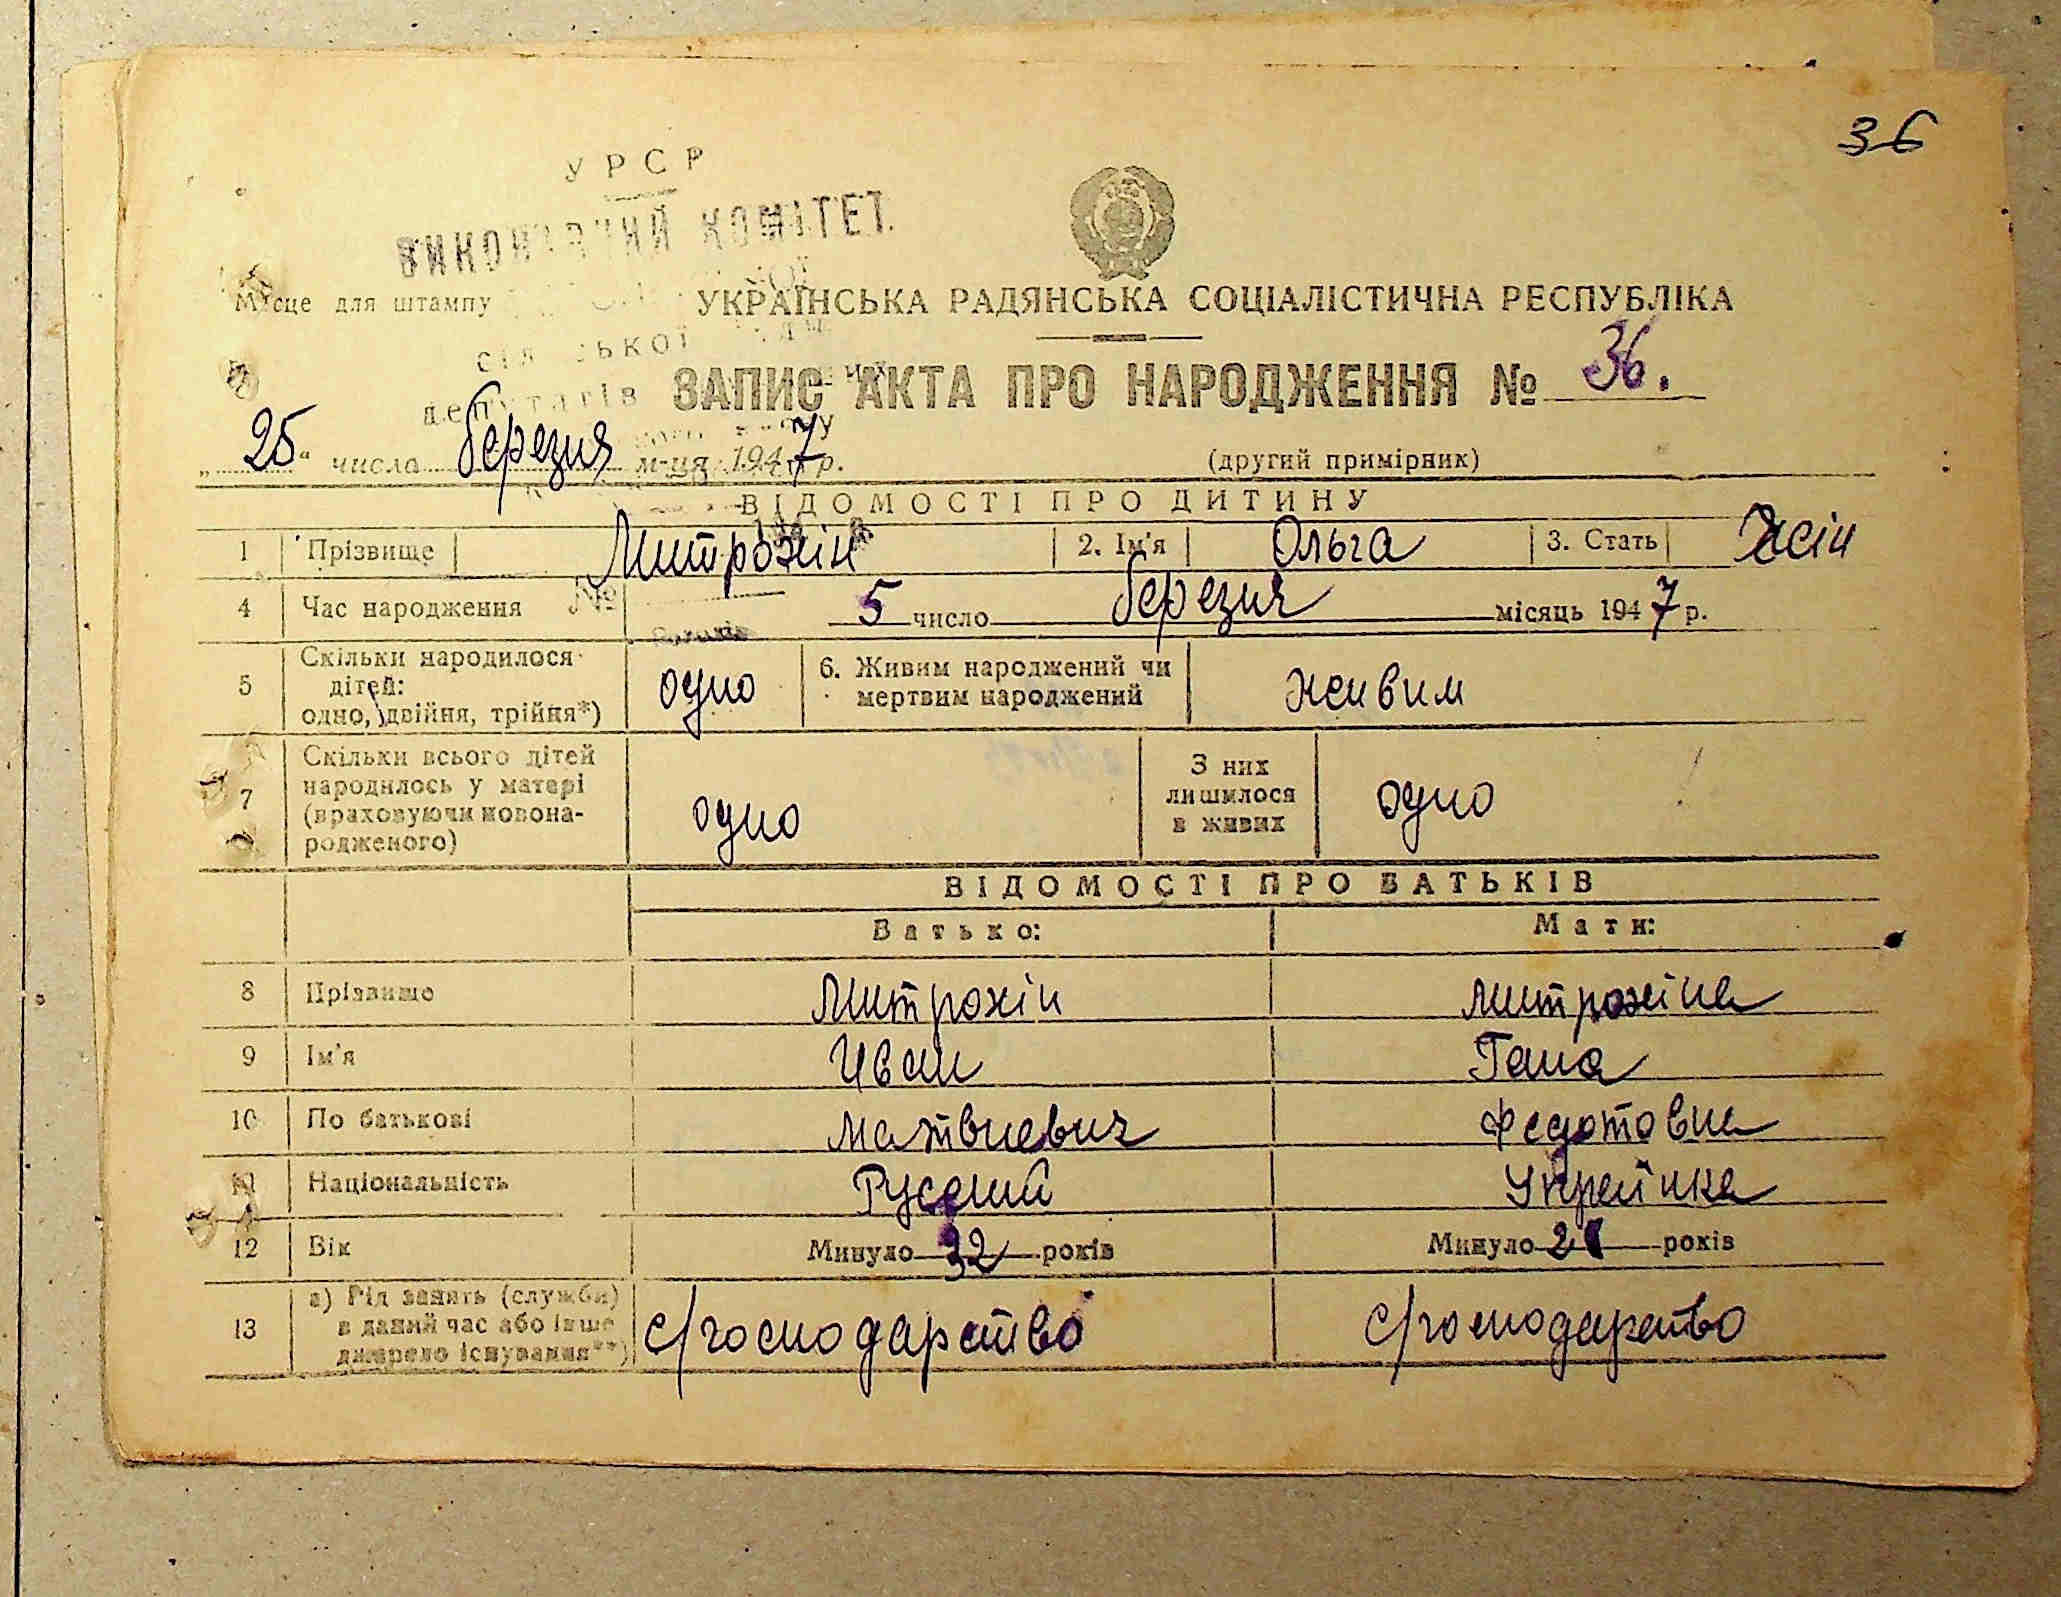 36
УРСР
ВИКОНАВЧИЙ КОМІТЕТ
Місце для штампу
УКРАЇНСЬКА РАДЯНСЬКА СОЦІАЛІСТИЧНА РЕСПУБЛІКА
сільської
депутатів
ЗАПИС АКТА ПРО НАРОДЖЕННЯ № 36.
„25“ числа березня м-ця 1947 р.
(другий примірник)
ВІДОМОСТІ ПРО ДИТИНУ
1 Прізвище Митрохін 2. Ім'я Ольга 3. Стать Жін
4 Час народження № 5 число березня місяць 1947 р.
5 Скільки народилося дітей: одно, двійня, трійня*) одно 6. Живим народжений чи мертвим народжений живим
7 Скільки всього дітей народилось у матері (враховуючи новонародженого) одно З них лишилося в живих одно
ВІДОМОСТІ ПРО БАТЬКІВ
Батько: Мати:
8 Прізвище Митрохін Митрохіна
9 Ім'я Иван Гана
10 По батькові Матвиевич Федотовна
11 Національність Руський Українка
12 Вік Минуло 32 років Минуло років
13 а) Рід занять (служби) в даний час або інше джерело існування**) с/господарство с/господарство